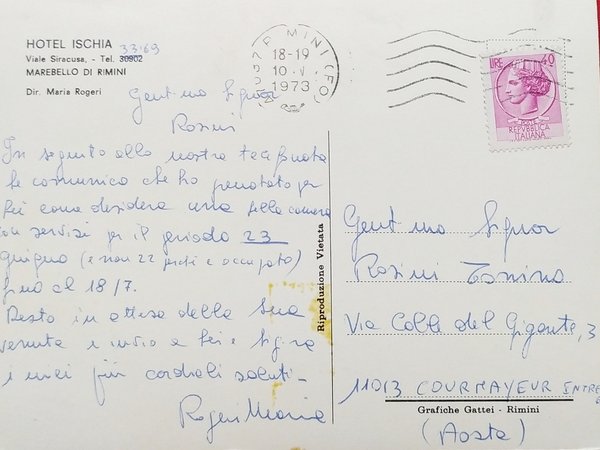 HOTEL ISCHIA
33.69
Viale Siracusa, - Tel. 30902
MAREBELLO DI RIMINI
Dir. Maria Rogeri
RIMINI (FO)
18-19
1973
LIRE 40
REPVBBLICA
ITALIANA
Gent.mo Signor
Rosini
In seguito alla nostra telefonata
Le comunico che ho prenotato per
Lei come desidera una bella camera
con servizi per il periodo 23
giugno (e non 22 perché occupato)
fino al 18/7.
Resto in attesa della Sua
venuta e invio a Lei e Sig.ra
i miei più cordiali saluti-
Rogeri Maria
Riproduzione Vietata
Gent.mo Signor
Rosini Tonino
Via Colle del Gigante, 3
11013 COURMAYEUR ENTRE
Grafiche Gattei - Rimini
(Aosta)